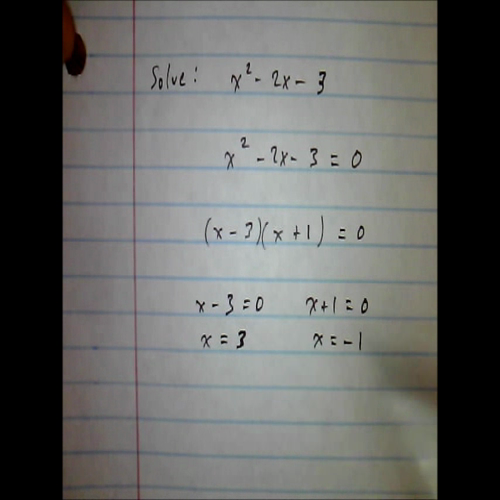 Solve: x² - 2x - 3
x² - 2x - 3 = 0
(x - 3)(x + 1) = 0
x - 3 = 0 x + 1 = 0
x = 3 x = -1